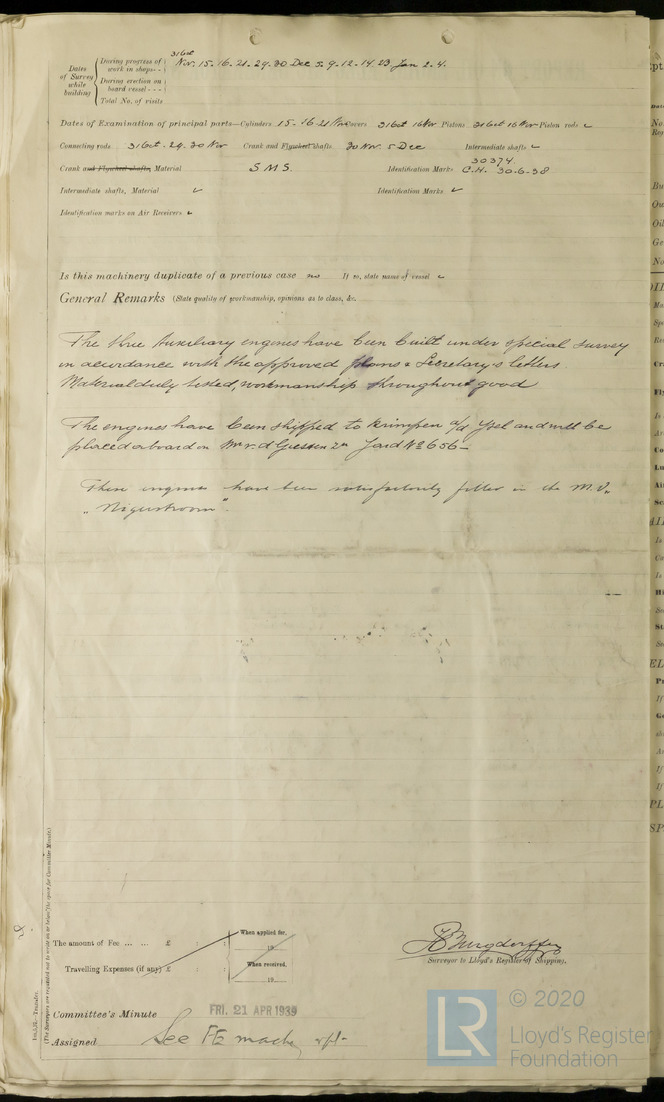 Dates of Survey while building
During progress of work in shops - - 31 Oct Nov. 15. 16. 21. 29. 30 Dec 5. 9. 12. 14. 23 Jan 2. 4.
During erection on board vessel - - -
Total No. of visits
Dates of Examination of principal parts—Cylinders 15. 16 21 Nov Covers 31 Oct 16 Nov Pistons 31 Oct 16 Nov Piston rods ✓
Connecting rods 31 Oct. 29. 30 Nov Crank and Flywheel shafts 30 Nov. 5 Dec Intermediate shafts ✓
Crank and Flywheel shafts, Material S M S. Identification Marks 30374 C.H. 30.6.38
Intermediate shafts, Material ✓ Identification Marks ✓
Identification marks on Air Receivers ✓
Is this machinery duplicate of a previous case no If so, state name of vessel ✓
General Remarks (State quality of workmanship, opinions as to class, &c.
The three Auxiliary engines have been built under special survey
in accordance with the approved plans & Secretary's letters.
Material duly tested, workmanship throughout good
The engines have been shipped to Krimpen a/d Ysel and will be
placed aboard on v. d Giessen Zn Yard No 656 –
These engines have been satisfactorily fitted in the M.V.
"Nigerstroom".
(The Surveyors are requested not to write on or below the space for Committee Minute.)
Transfer.
The amount of Fee ... ... £ : : When applied for, 19
Travelling Expenses (if any) £ : : When received, 19
Surveyor to Lloyd's Register of Shipping.
Committee's Minute FRI. 21 APR 1939
Assigned See FE mach rpt-
LR
© 2020
Lloyd's Register
Foundation